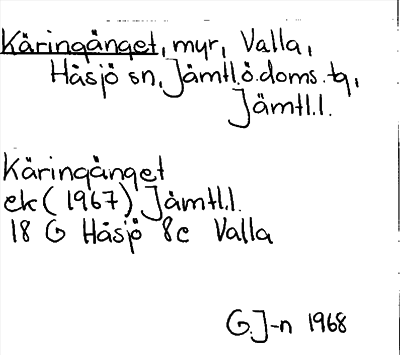 Käringänget, myr, Valla,
Håsjö sn, Jämtl.ö.doms.tg,
Jämtl.l.
Käringänget
ek (1967) Jämtl.l.
18 G Håsjö 8c Valla
G.J-n 1968